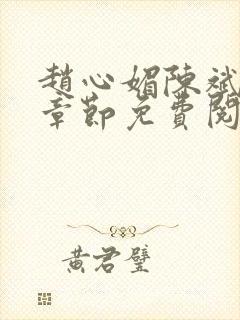 趙心媚陳斌
章節免費閱
黃君璧